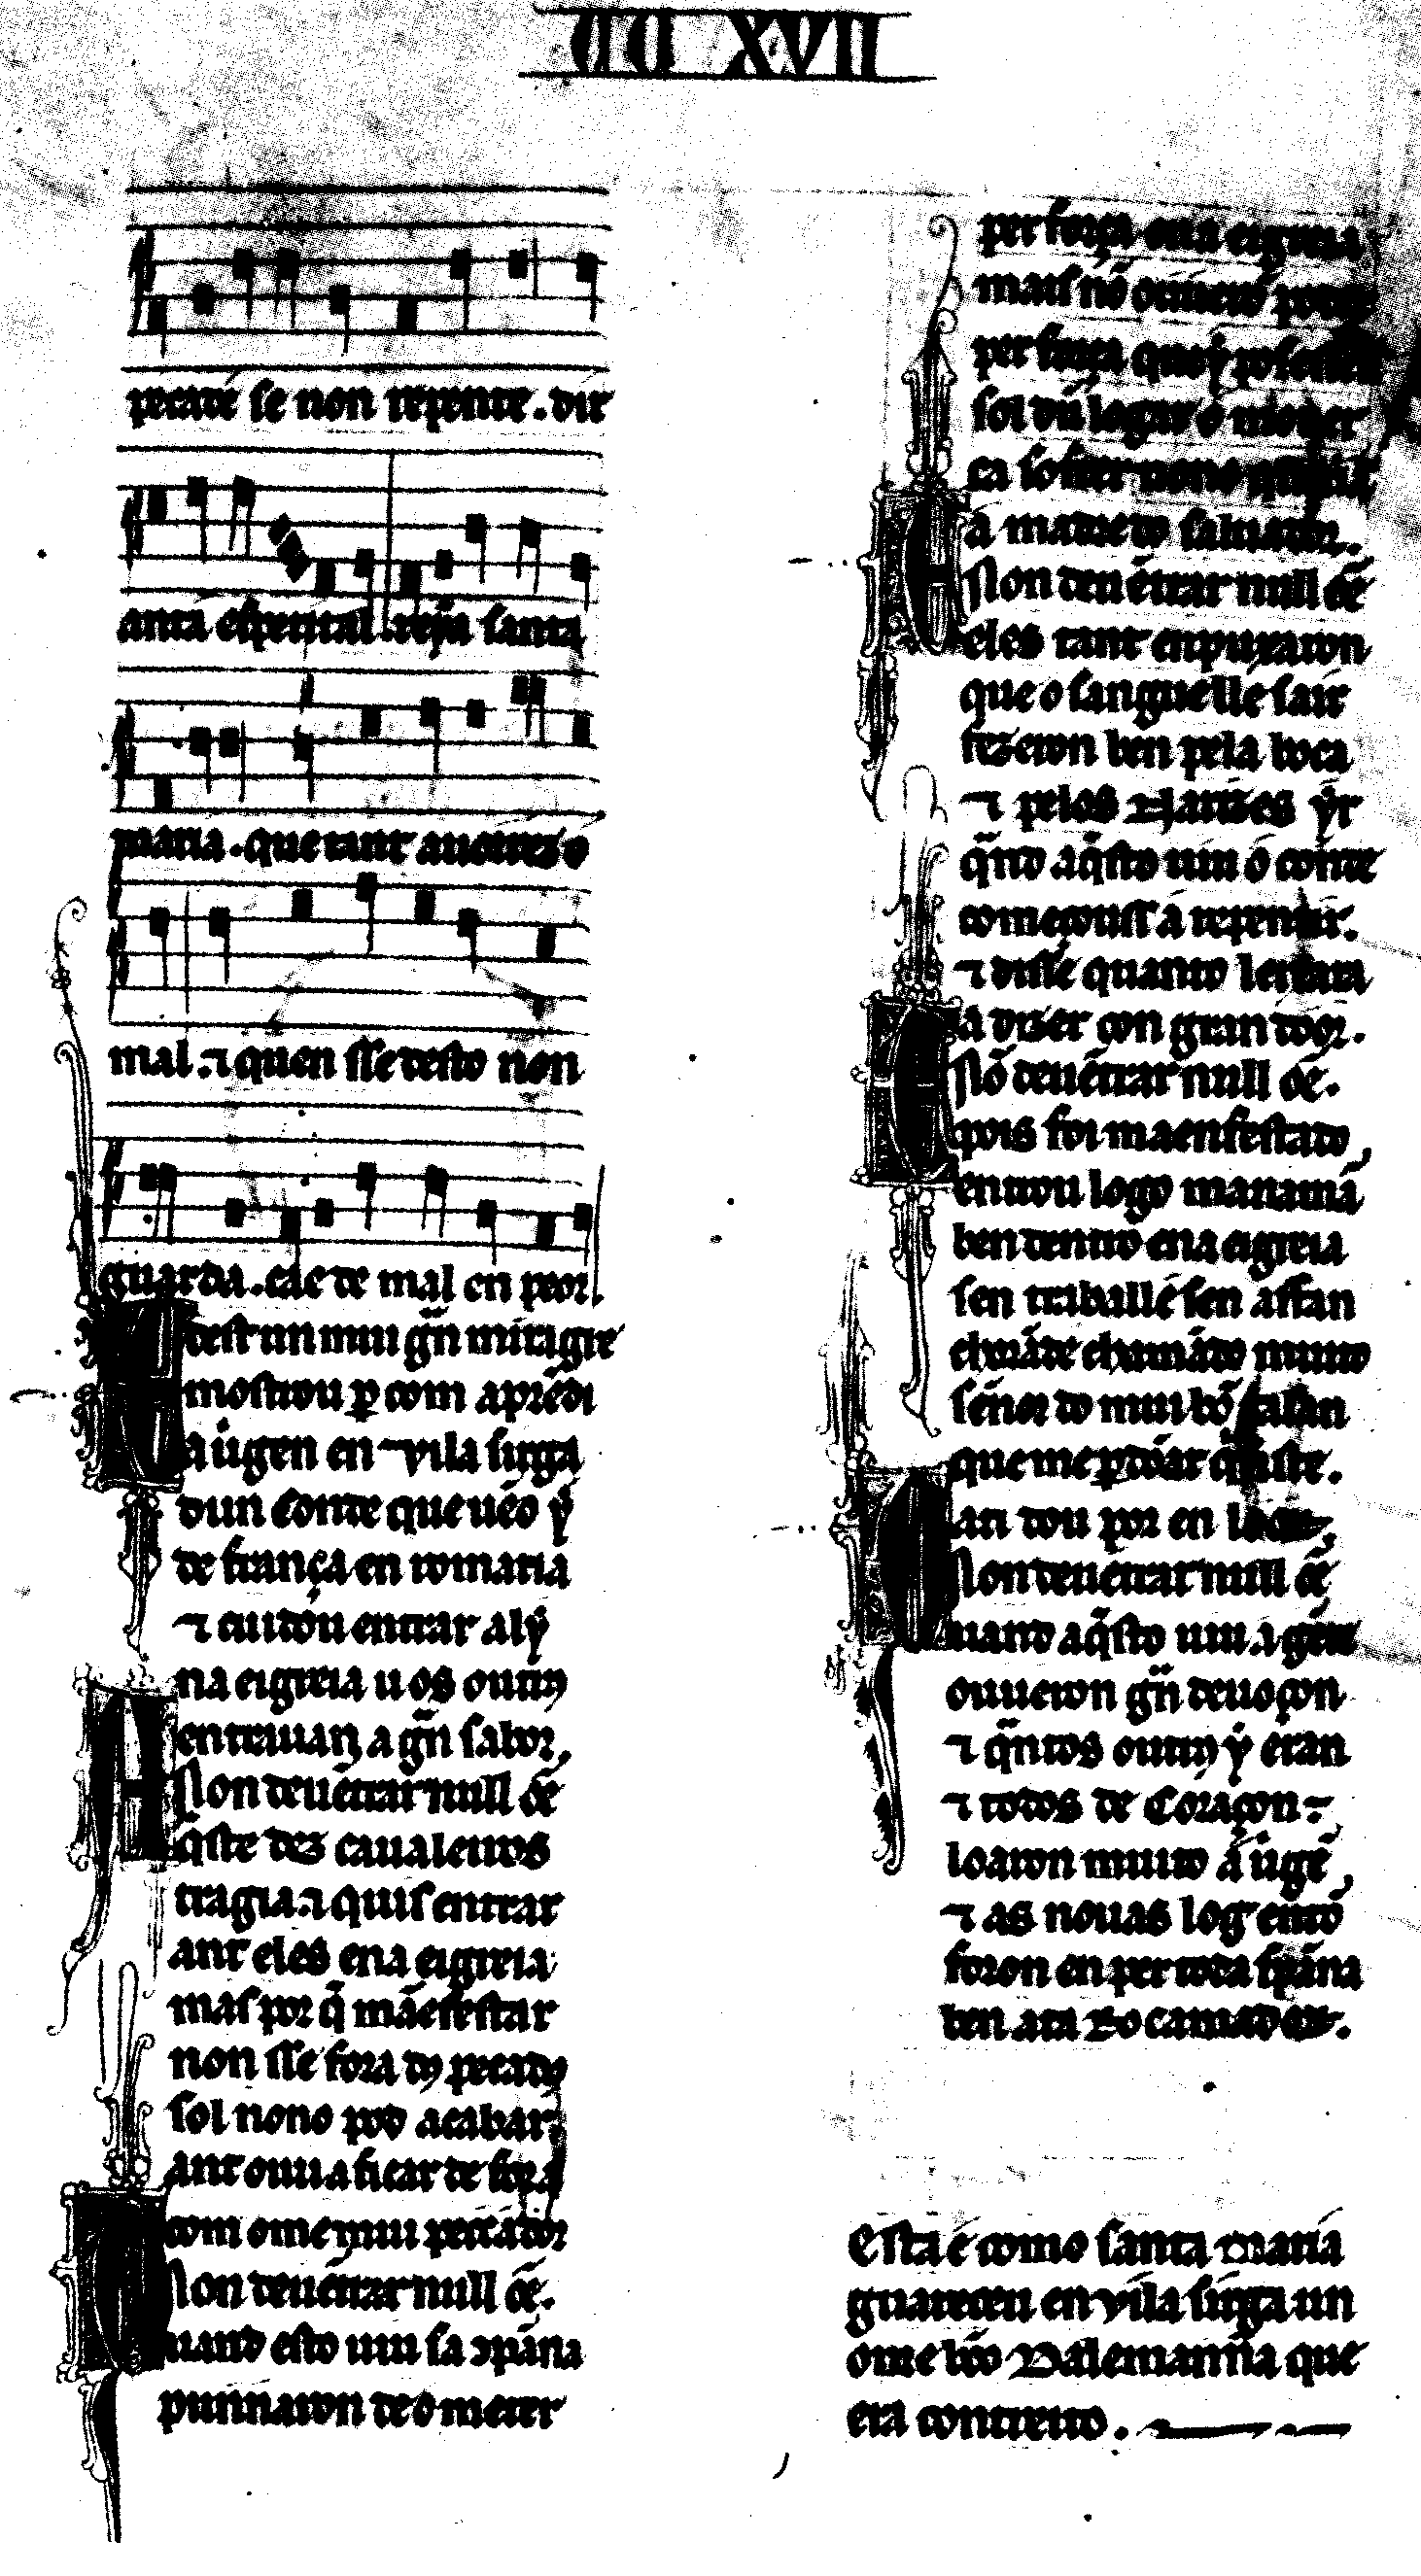 CC XVII
pecađ se non repente. dir
anta espeital. reỹu santa
maria. que tant auorrez o
mal. ⁊ quen sse desto non
guarda. cae de mal en peor.
Dest un mui gñ miragre
mostrou ꝑ com aprẽdi
a uirgen en Vila sirga
dun Conte que uẽo ỹ
de françа en romaria
⁊ cuidóu entrar alý
na eigreia u os outrꝯ
entrauan a gñ sabor,
Non deu ẽtrar null õe
Aq̃ste dez caualeiros
tragia. ⁊ quis entrar
ant eles ena eigreia
mas por q̃ mãefestar
non sse fora dꝯ pecadꝯ
sol nono pod acabar.
ant ouu a ficar de fora
com ome mui peccador
Non deu ẽtrar null õe.
Quand esto uiu sa ꝯpãna
punnaron de o meter
per força ena eigreia
mais nõ ouueron poder
per força que ỹ posessen
sol dũ logar o mouer
ca sofrer nono queria
a madre do saluador.
Non deu ẽtrar null õe
E eles tant enpuxaron
que o sangue llé sair
fezeron ben pela boca
⁊ pelos Narizes ỹr
q̃nd aq̃sto uiu o conte
começouss a repentir.
⁊ disse quanto leixara
a dizer con gran door.
Nõ deu ẽtrar null õe.
E pois foi maenfestado,
entrou logo manamã
ben dentro ena eigreia
sen traball e sen affan
chorãde chamãdo muito
señor do mui bõ talan
que me ꝑdõar q̃siste.
a ti dou por en loor,
Non deu ẽtrar null õe
Quand aq̃sto uiu. a gẽte
ouueron gñ deuoçon
⁊ q̃ntos outrꝯ ỹ eran
⁊ todos de Coraçon
loaron muito a uirgẽ,
⁊ as nouas log entõ
foron en per toda spãna
ben ata Rocamador.
Esta é como santa maria
guareceu en vila sirga un
ome bõo Dalemanna que
era contreito.